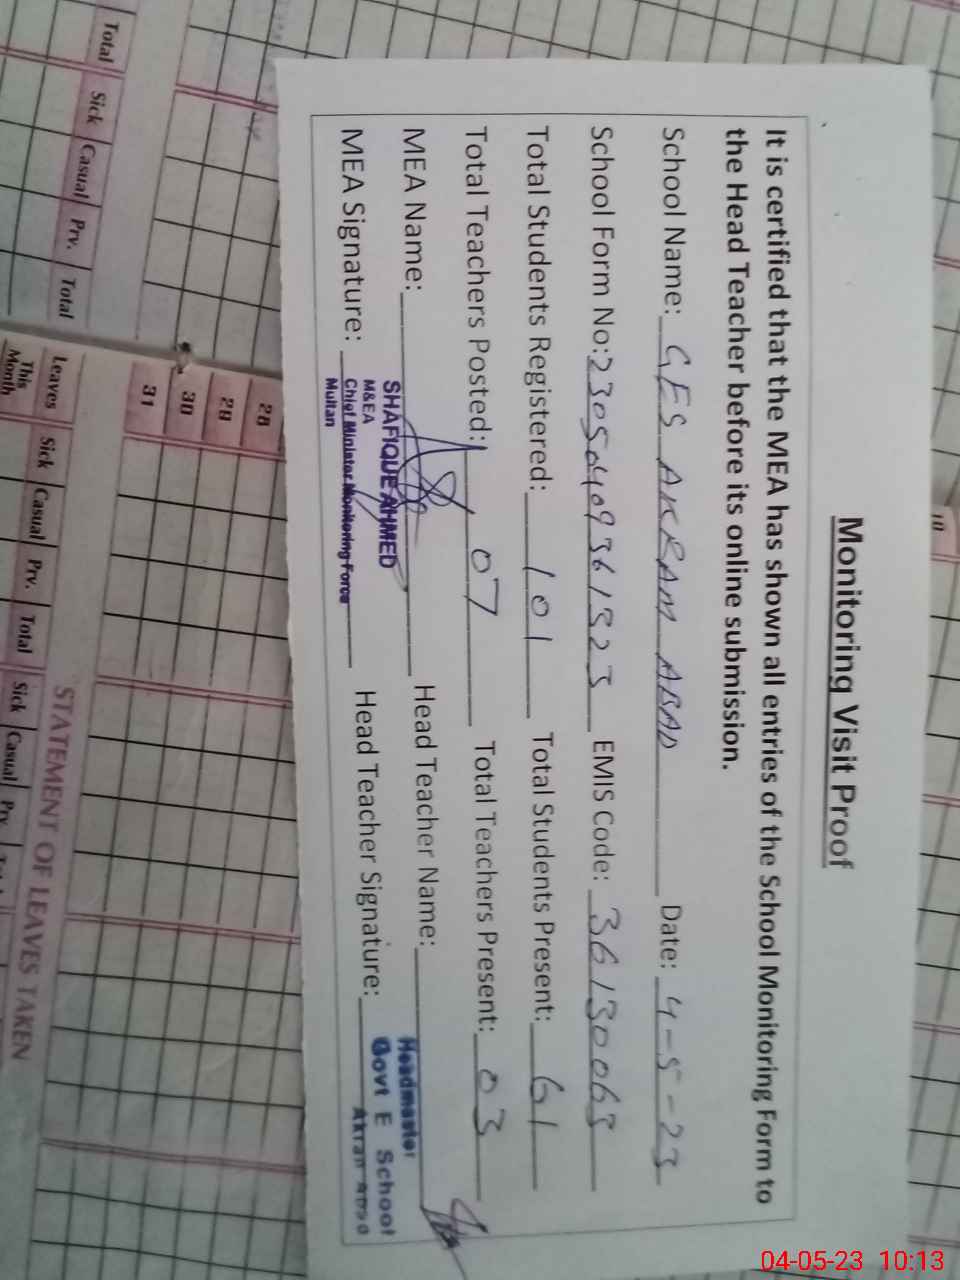 Monitoring Visit Proof
It is certified that the MEA has shown all entries of the School Monitoring Form to
the Head Teacher before its online submission.
School Name: GES AKRAM ABAD Date: 4-5-23
School Form No: EMIS Code: 36130063
Total Students Registered: 101 Total Students Present: 61
Total Teachers Posted: 07 Total Teachers Present: 03
MEA Name: Head Teacher Name:
MEA Signature: Head Teacher Signature:
SHAFIQUE AHMED
M&EA
Chief Minister Monitoring Force
Multan
Headmaster
Govt E School
Total
Sick Casual Prv. Total
28
29
30
31
Leaves This Month
Sick Casual Prv. Total
Sick Casual Prv.
STATEMENT OF LEAVES TAKEN
10
04-05-23 10:13